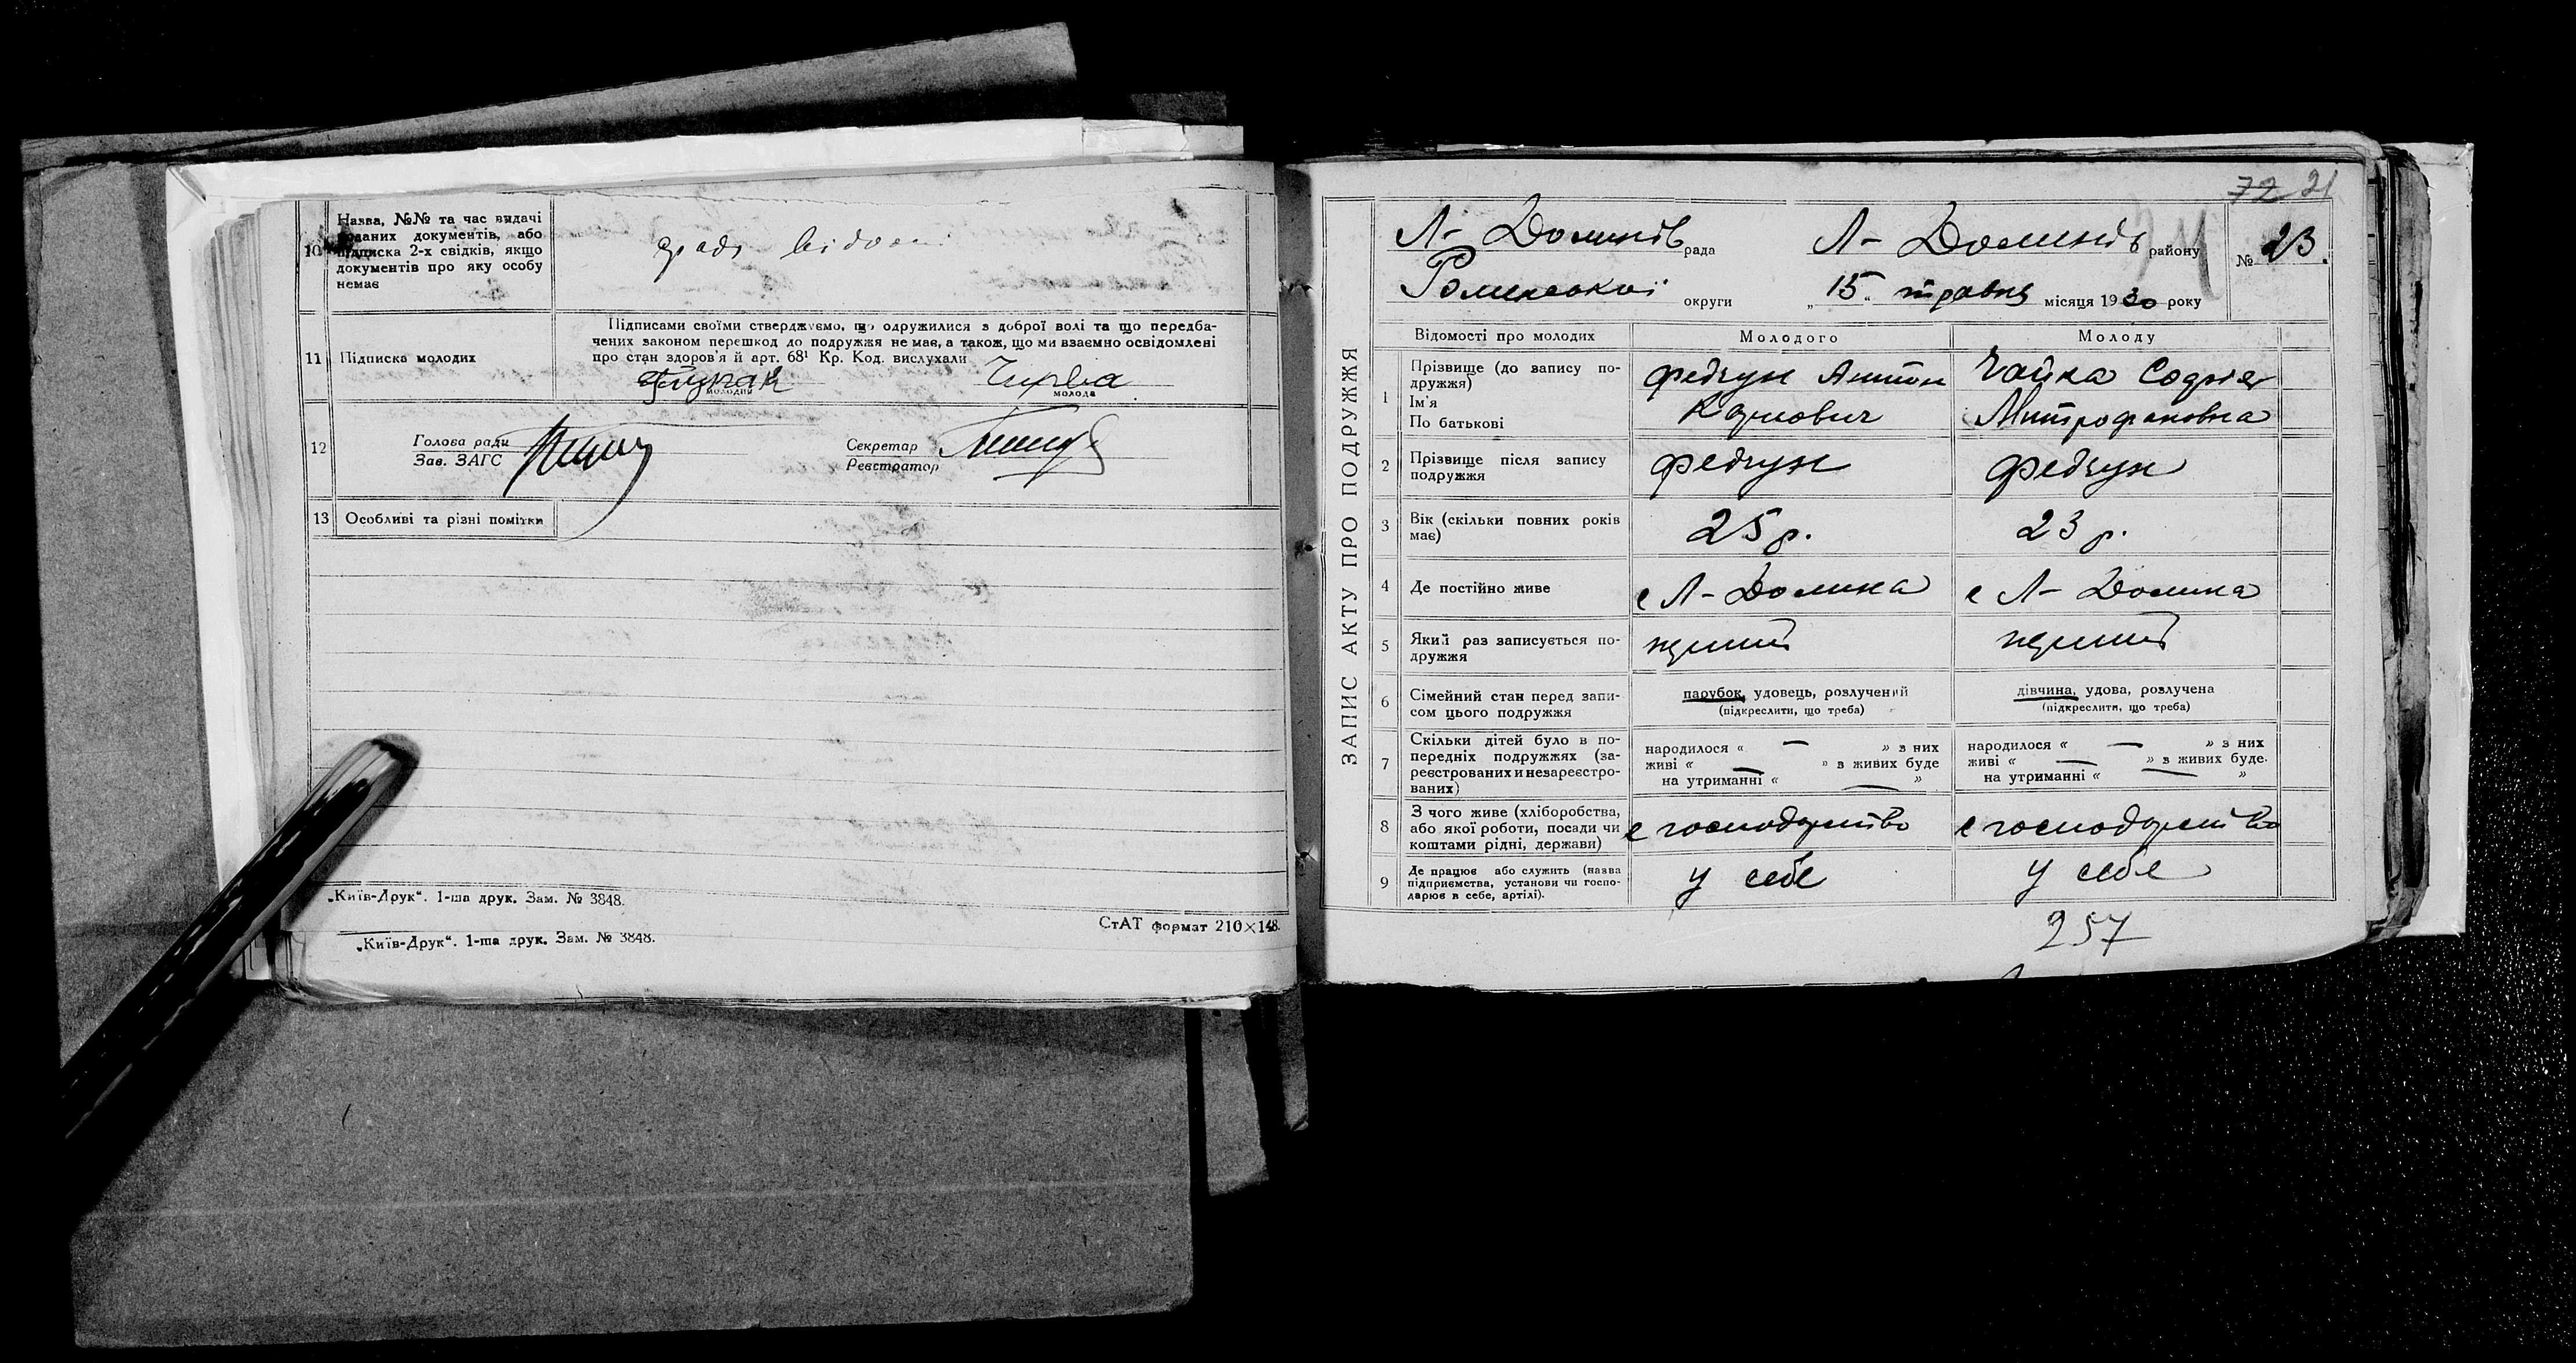 10
Назва, №№ та час видачі
поданих документів, або
підписка 2-х свідків, якщо
документів про яку особу
немає
раді відомі
11
Підписка молодих
Підписами своїми стверджуємо, що одружилися з доброї волі та що передба-
чених законом перешкод до подружжя немає, а також, що ми взаємно освідомлені
про стан здоров'я й арт. 68¹ Кр. Код. вислухали
Чирва
молодий
молода
12
Голова ради
Зав. ЗАГС
Секретар
Реєстратор
13
Особливі та різні помітки
„Київ-Друк“. 1-ша друк. Зам. № 3848.
СтАТ формат 210×148.
„Київ-Друк“. 1-ша друк. Зам. № 3848.
72 21
ЗАПИС АКТУ ПРО ПОДРУЖЖЯ
Л- Долинів рада Л- Долинів району № 23.
Роменської округи „15“ травня місяця 1930 року
Відомості про молодих
Молодого
Молоду
1
Прізвище (до запису по-
дружжя)
Ім'я
По батькові
Федчун Антон
Карпович
Чайка Софія
Митрофановна
2
Прізвище після запису
подружжя
Федчун
Федчун
3
Вік (скільки повних років
має)
25 р.
23 р.
4
Де постійно живе
с Л- Долина
с Л- Долина
5
Який раз записується по-
дружжя
перший
перший
6
Сімейний стан перед запи-
сом цього подружжя
парубок, удовець, розлучений
(підкреслити, що треба)
дівчина, удова, розлучена
(підкреслити, що треба)
7
Скільки дітей було в по-
передніх подружжях (за-
реєстрованих и незареєстро-
ваних)
народилося « — » з них
живі « — » з живих буде
на утриманні « — »
народилося « — » з них
живі « — » з живих буде.
на утриманні « — »
8
З чого живе (хліборобства,
або якої роботи, посади чи
коштами рідні, держави)
с господарство
с господарство
9
Де працює або служить (назва
підприємства, установи чи госпо-
дарює в себе, артілі).
у себе
у себе
257